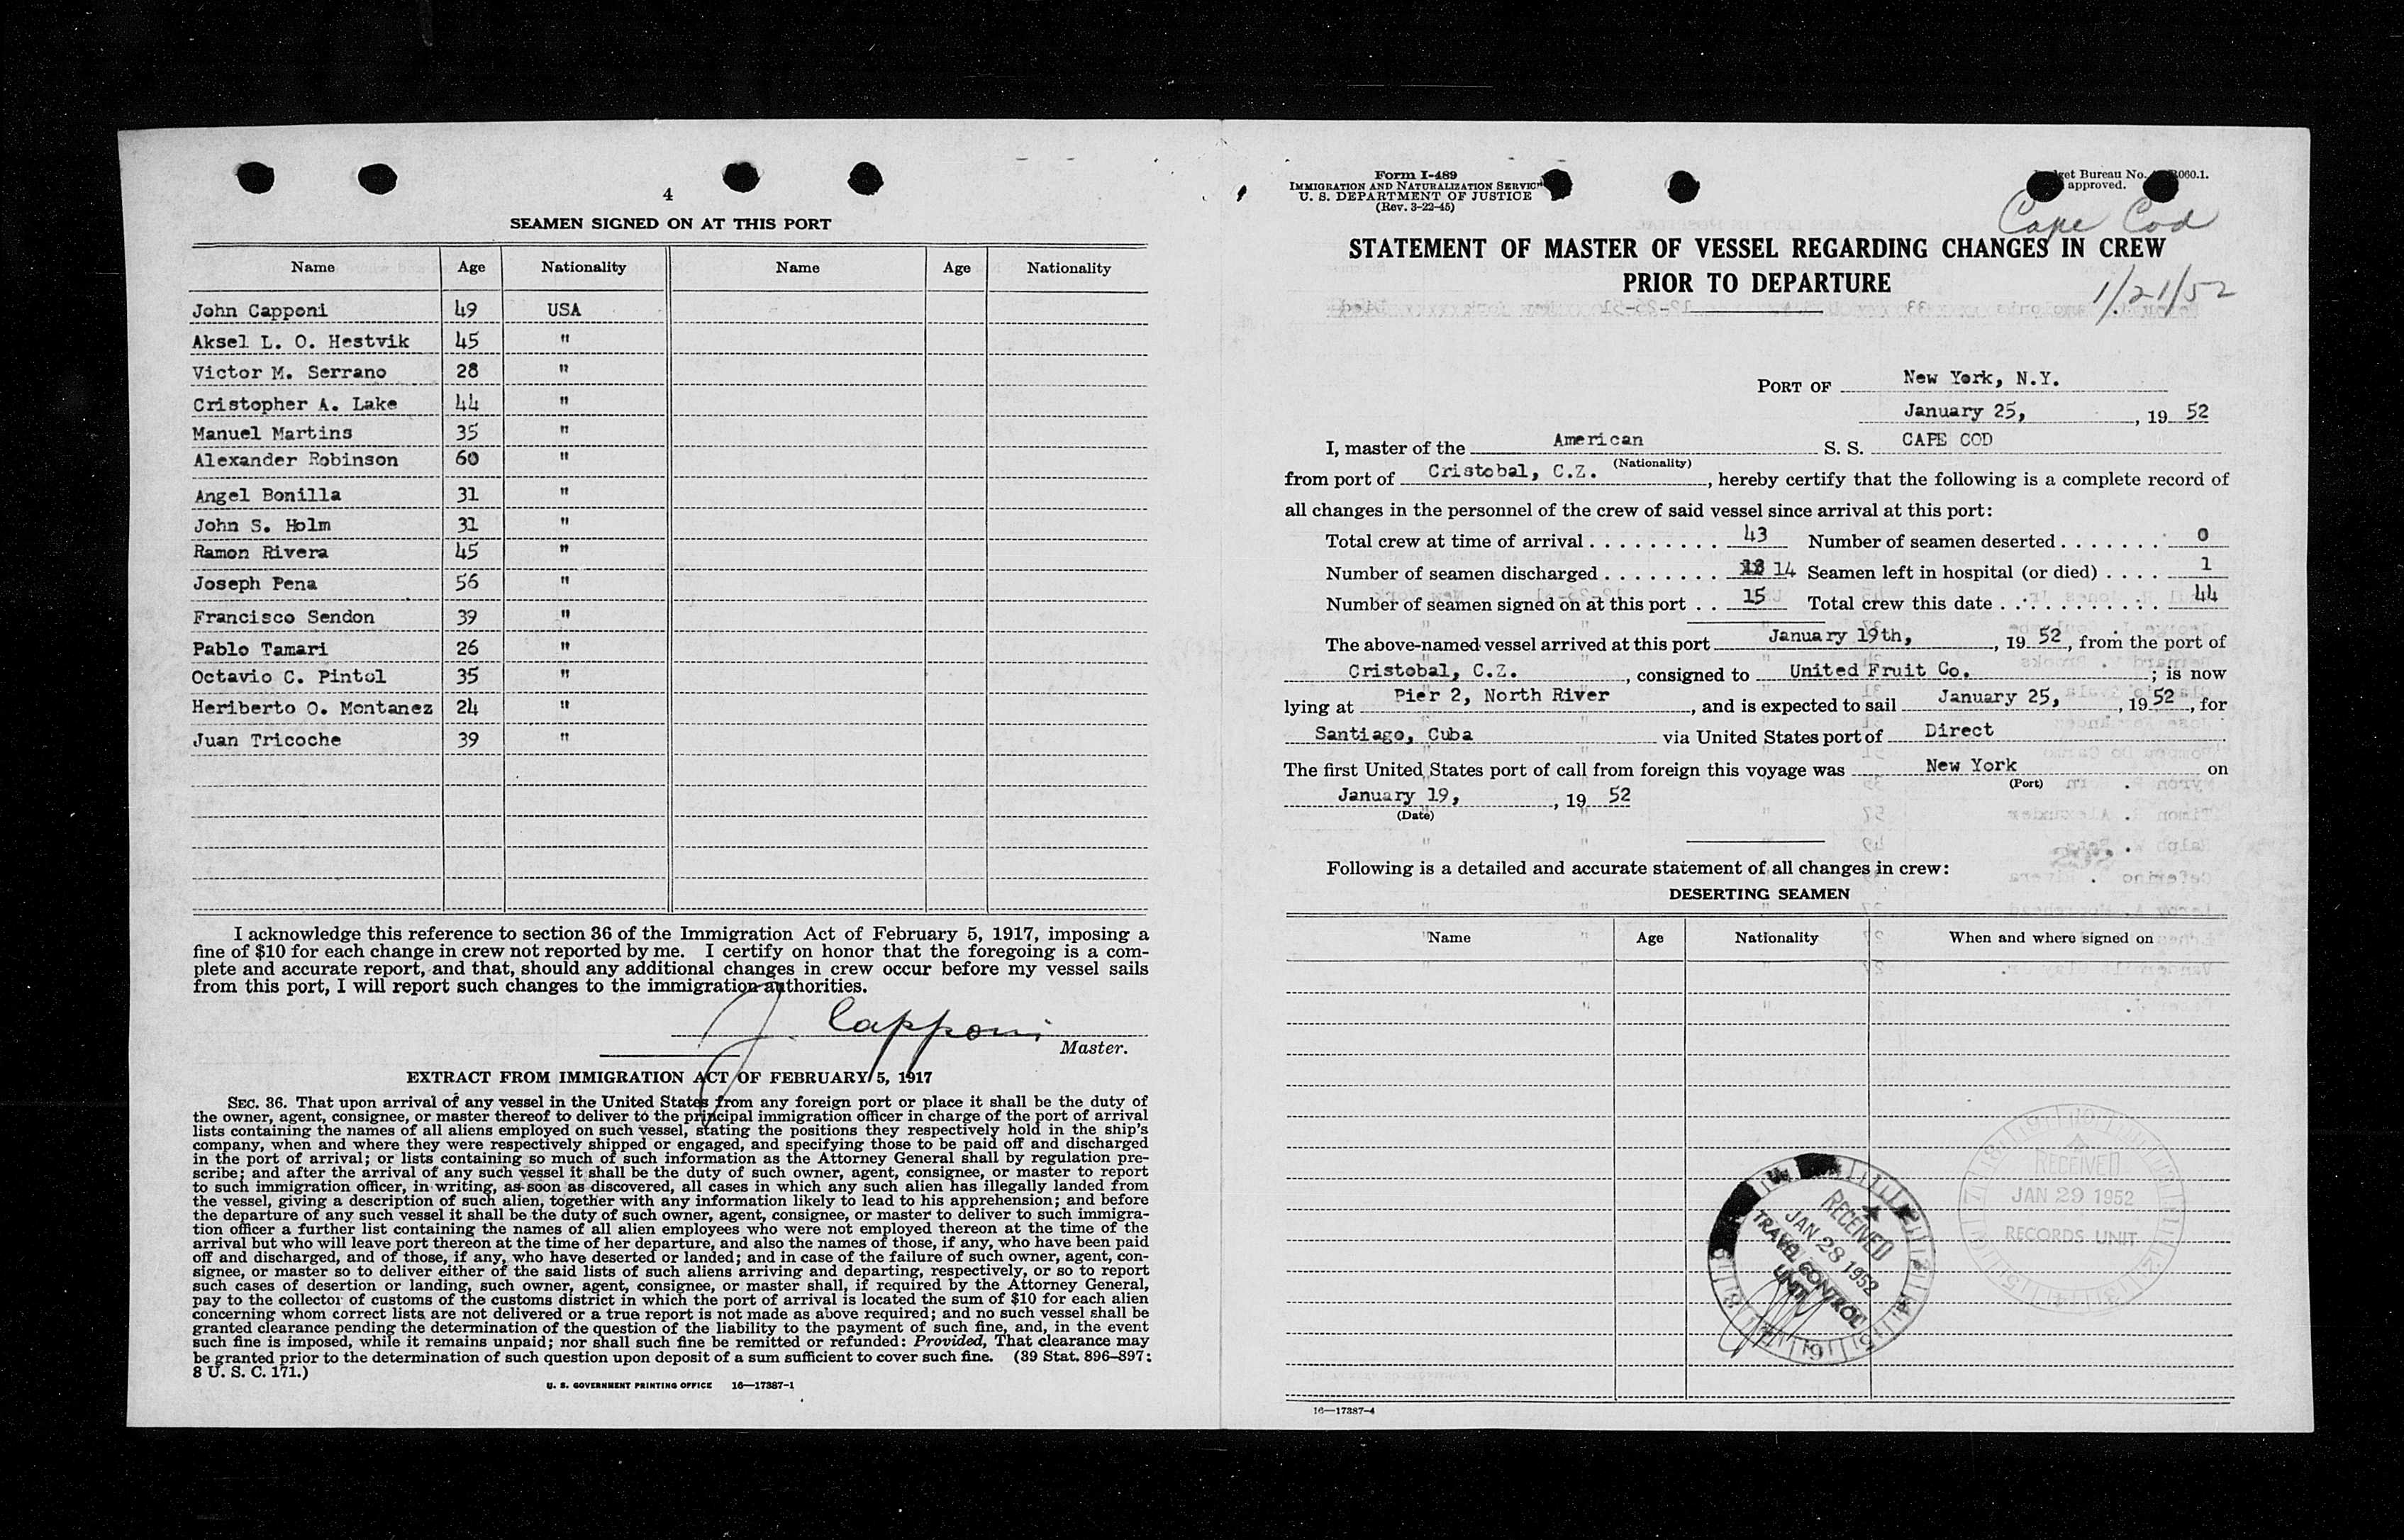 4
SEAMEN SIGNED ON AT THIS PORT
Name Age Nationality Name Age Nationality
John Capponi 49 USA
Aksel L. O. Hestvik 45 "
Victor M. Serrano 28 "
Cristopher A. Lake 44 "
Manuel Martins 35 "
Alexander Robinson 60 "
Angel Bonilla 31 "
John S. Holm 31 "
Ramon Rivera 45 "
Joseph Pena 56 "
Francisco Sendon 39 "
Pablo Tamari 26 "
Octavio C. Pintol 35 "
Heriberto O. Montanez 24 "
Juan Tricoche 39 "
I acknowledge this reference to section 36 of the Immigration Act of February 5, 1917, imposing a
fine of $10 for each change in crew not reported by me. I certify on honor that the foregoing is a com-
plete and accurate report, and that, should any additional changes in crew occur before my vessel sails
from this port, I will report such changes to the immigration authorities.
J. Capponi
Master.
EXTRACT FROM IMMIGRATION ACT OF FEBRUARY 5, 1917
SEC. 36. That upon arrival of any vessel in the United States from any foreign port or place it shall be the duty of
the owner, agent, consignee, or master thereof to deliver to the principal immigration officer in charge of the port of arrival
lists containing the names of all aliens employed on such vessel, stating the positions they respectively hold in the ship's
company, when and where they were respectively shipped or engaged, and specifying those to be paid off and discharged
in the port of arrival; or lists containing so much of such information as the Attorney General shall by regulation pre-
scribe; and after the arrival of any such vessel it shall be the duty of such owner, agent, consignee, or master to report
to such immigration officer, in writing, as soon as discovered, all cases in which any such alien has illegally landed from
the vessel, giving a description of such alien, together with any information likely to lead to his apprehension; and before
the departure of any such vessel it shall be the duty of such owner, agent, consignee, or master to deliver to such immigra-
tion officer a further list containing the names of all alien employees who were not employed thereon at the time of the
arrival but who will leave port thereon at the time of her departure, and also the names of those, if any, who have been paid
off and discharged, and of those, if any, who have deserted or landed; and in case of the failure of such owner, agent, con-
signee, or master so to deliver either of the said lists of such aliens arriving and departing, respectively, or so to report
such cases of desertion or landing, such owner, agent, consignee, or master shall, if required by the Attorney General,
pay to the collector of customs of the customs district in which the port of arrival is located the sum of $10 for each alien
concerning whom correct lists are not delivered or a true report is not made as above required; and no such vessel shall be
granted clearance pending the determination of the question of the liability to the payment of such fine, and, in the event
such fine is imposed, while it remains unpaid; nor shall such fine be remitted or refunded: Provided, That clearance may
be granted prior to the determination of such question upon deposit of a sum sufficient to cover such fine. (39 Stat. 896-897;
8 U. S. C. 171.)
U. S. GOVERNMENT PRINTING OFFICE 16—17387-1
Form I-489
IMMIGRATION AND NATURALIZATION SERVICE
U. S. DEPARTMENT OF JUSTICE
(Rev. 3-22-45)
Bureau No.
approved.
Cape Cod
STATEMENT OF MASTER OF VESSEL REGARDING CHANGES IN CREW
PRIOR TO DEPARTURE
1/21/52
PORT OF New York, N.Y.
January 25, , 19 52
I, master of the American S. S. CAPE COD
(Nationality)
from port of Cristobal, C.Z. , hereby certify that the following is a complete record of
all changes in the personnel of the crew of said vessel since arrival at this port:
Total crew at time of arrival 43 Number of seamen deserted 0
Number of seamen discharged 14 Seamen left in hospital (or died) 1
Number of seamen signed on at this port 15 Total crew this date 44
The above-named vessel arrived at this port January 19th, , 19 52, from the port of
Cristobal, C.Z. , consigned to United Fruit Co. ; is now
lying at Pier 2, North River , and is expected to sail January 25, , 19 52, for
Santiago, Cuba via United States port of Direct
The first United States port of call from foreign this voyage was New York on
(Port)
January 19, , 19 52
(Date)
Following is a detailed and accurate statement of all changes in crew:
DESERTING SEAMEN
Name Age Nationality When and where signed on
RECEIVED
JAN 28 1952
TRAVEL CONTROL
UNIT
RECEIVED
JAN 29 1952
RECORDS UNIT
16—17387-4